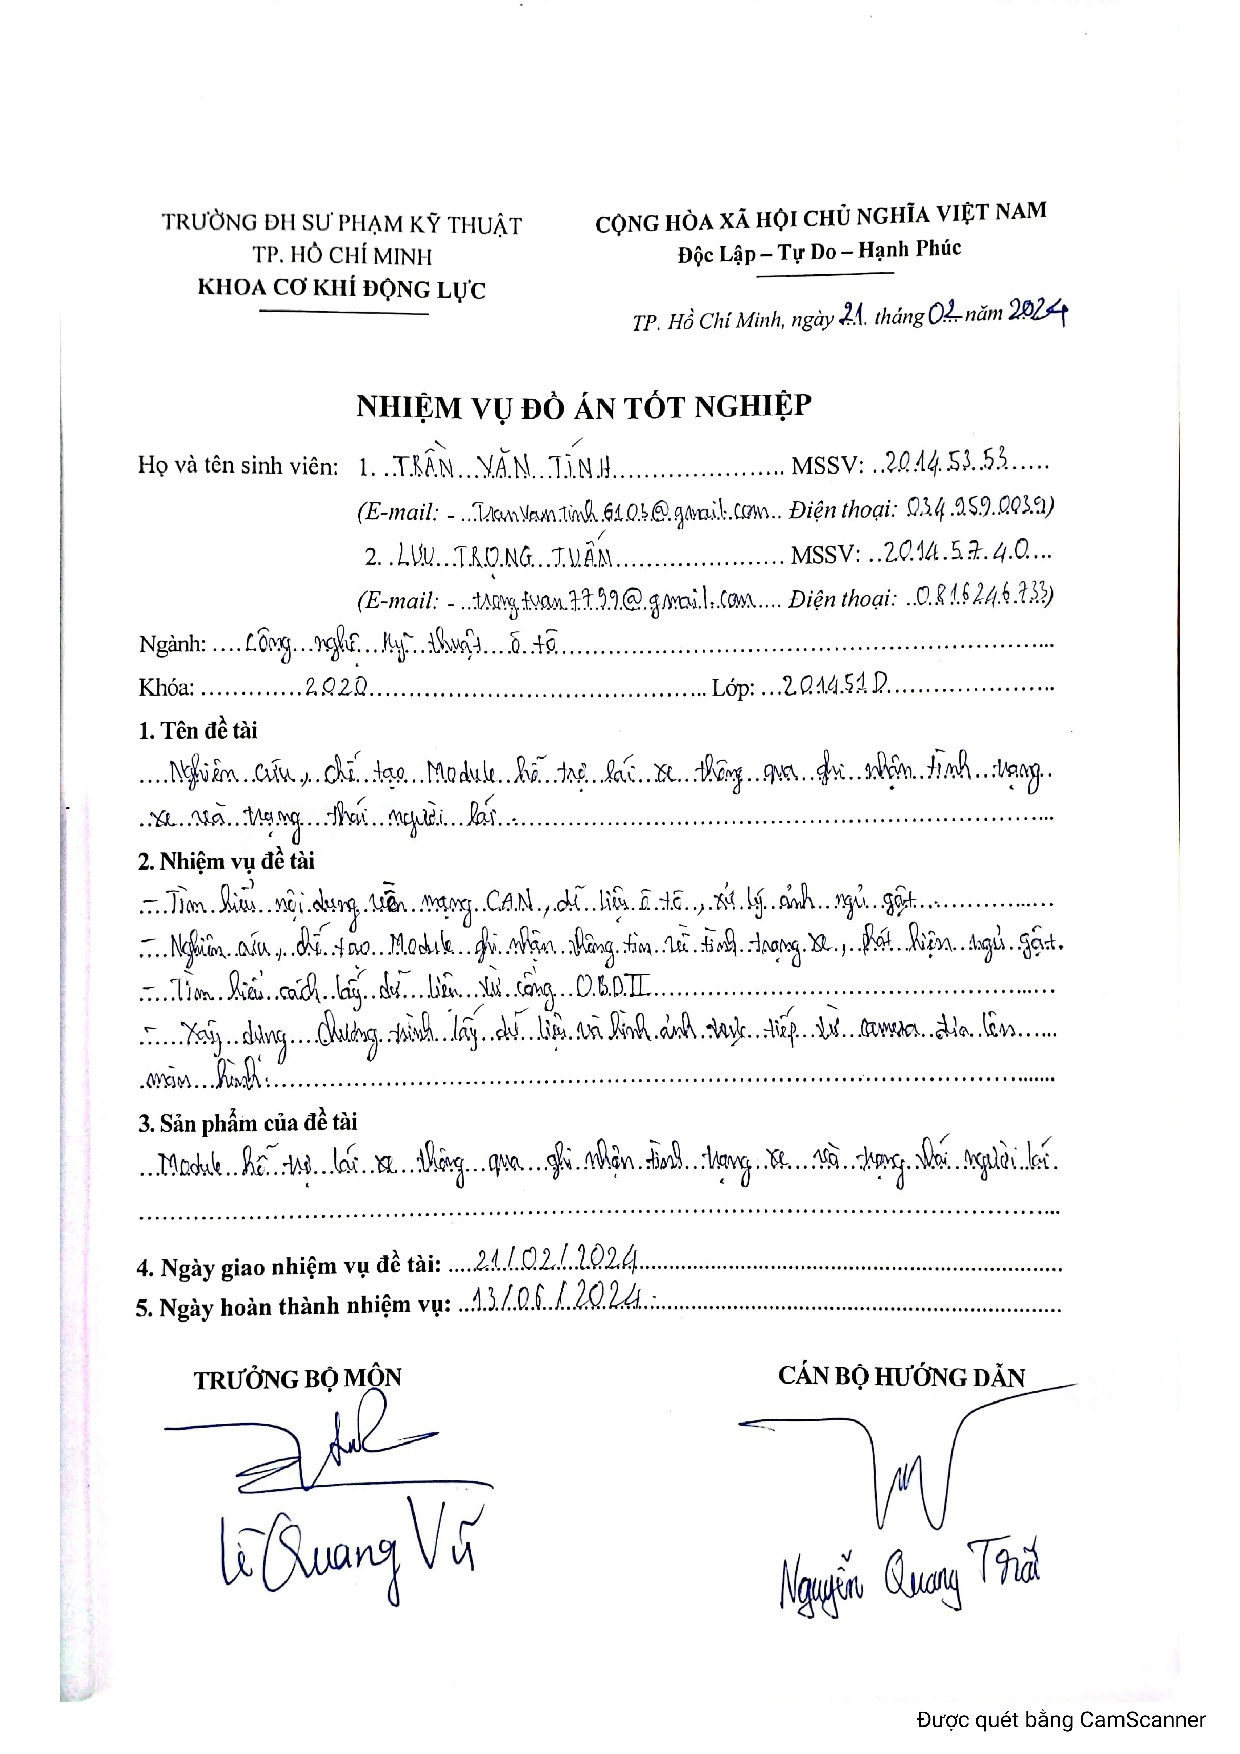 TRƯỜNG ĐH SƯ PHẠM KỸ THUẬT
TP. HỒ CHÍ MINH
KHOA CƠ KHÍ ĐỘNG LỰC
CỘNG HÒA XÃ HỘI CHỦ NGHĨA VIỆT NAM
Độc Lập – Tự Do – Hạnh Phúc
TP. Hồ Chí Minh, ngày 21 tháng 02 năm 2024
NHIỆM VỤ ĐỒ ÁN TỐT NGHIỆP
Họ và tên sinh viên: 1. TRẦN VĂN TÍNH MSSV: 20145353
(E-mail: - Tranvantinh6103@gmail.com Điện thoại: 034.959.0039)
2. LƯU TRỌNG TUẤN MSSV: 20145740
(E-mail: - trongtuan7799@gmail.com Điện thoại: 0816246733)
Ngành: Công nghệ Kỹ thuật ô tô
Khóa: 2020 Lớp: 201451D
1. Tên đề tài
Nghiên cứu, chế tạo Module hỗ trợ lái xe thông qua ghi nhận tình trạng
xe và trạng thái người lái.
2. Nhiệm vụ đề tài
- Tìm hiểu nội dung về mạng CAN, dữ liệu ô tô, xử lý ảnh ngủ gật.
- Nghiên cứu, chế tạo Module ghi nhận thông tin về tình trạng xe, phát hiện ngủ gật.
- Tìm hiểu cách lấy dữ liệu từ cổng OBDII
- Xây dựng chương trình lấy dữ liệu và hình ảnh trực tiếp từ camera đưa lên
màn hình.
3. Sản phẩm của đề tài
Module hỗ trợ lái xe thông qua ghi nhận tình trạng xe và trạng thái người lái.
4. Ngày giao nhiệm vụ đề tài: 21/02/2024
5. Ngày hoàn thành nhiệm vụ: 13/06/2024.
TRƯỞNG BỘ MÔN
CÁN BỘ HƯỚNG DẪN
Lê Quang Vũ
Nguyễn Quang Trãi
Được quét bằng CamScanner